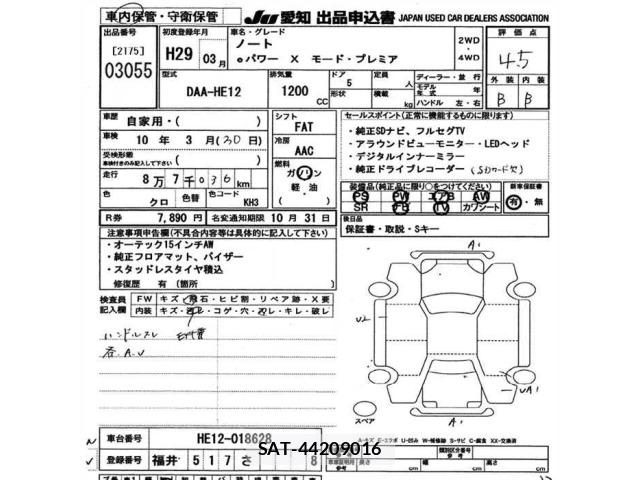 車内保管・守衛保管
JU 愛知 出品申込書 JAPAN USED CAR DEALERS ASSOCIATION
出品番号 初度登録年月 車名・グレード 2WD・4WD 評価点
[2175] H29年 03月 ノート 4.5
03055 eパワー X モード・プレミア
型式 排気量 ドア 定員 人 ディーラー・並行 外装 内装
DAA-HE12 1200CC 5 形状 積載 kg モデル年式 年 ハンドル 左・右 B B
車歴 自家用・( ) シフト セールスポイント(正常に機能するものに限ります)
車検 10年 3月(30日) FAT ・純正SDナビ、フルセグTV
受検形態 車検付きのみ記入して下さい 冷房 AAC ・アラウンドビューモニター・LEDヘッド
・デジタルインナーミラー
走行 8万7千036km 燃料 ガソリン 軽・油 ・純正ドライブレコーダー(SDカード欠)
色 クロ 色替 色コード KH3 装備品(純正品に限り○をつけてください) 新車保証書
PS PW エアB AW 有・無
SR PB TV カワシート
R券 7,890円 名変通知期限 10月31日 後日品
注意事項申告欄(不具合内容等は具体的に記入して下さい) 保証書・取説・Sキー
・オーテック15インチAW
・純正フロアマット、バイザー
・スタッドレスタイヤ積込
修復歴 有(箇所 )
検査員記入欄 FW キズ・飛石・ヒビ割・リペア跡・X要
内装 キズ・汚レ・コゲ・穴・凹レ・キレ・破レ
ハンドルスレ
各A.U
A1
U2
UA1
A1
スペア
A-キズ E-エクボ U-凹み W-補修跡 S-サビ C-腐食 XX-交換済
車台番号 HE12-018628
SAT-44209016
登録番号 福井 517 さ 8 長さ cm 幅 cm 高さ cm
類別区分番号(参考)